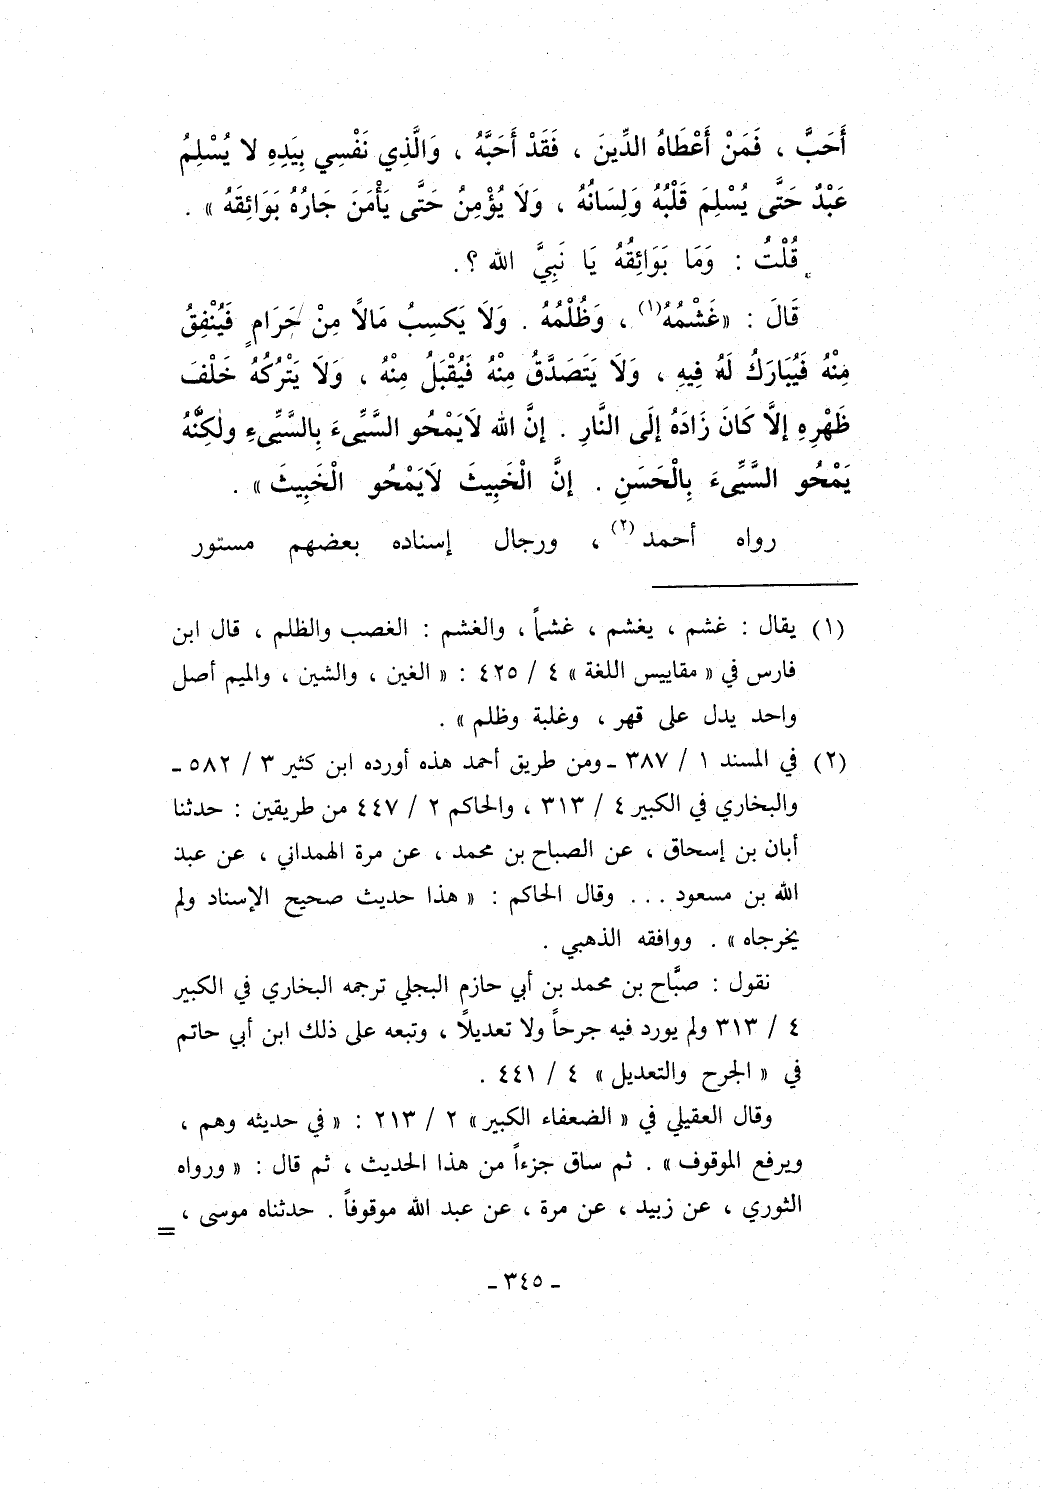 أَحَبَّ ، فَمَنْ أَعْطَاهُ الدِّينَ ، فَقَدْ أَحَبَّهُ ، وَالَّذِي نَفْسِي بِيَدِهِ لا يُسْلِمُ
عَبْدٌ حَتَّى يُسْلِمَ قَلْبُهُ وَلِسَانُهُ ، وَلَا يُؤْمِنُ حَتَّى يَأْمَنَ جَارُهُ بَوَائِقَهُ » .
قُلْتُ : وَمَا بَوَائِقُهُ يَا نَبِيَّ الله ؟ .
قَالَ : «غَشْمُهُ(١) ، وَظُلْمُهُ . وَلَا يَكسِبُ مَالاً مِنْ حَرَامٍ فَيُنْفِقُ
مِنْهُ فَيُبَارَكُ لَهُ فِيهِ ، وَلَا يَتَصَدَّقُ مِنْهُ فَيُقْبَلُ مِنْهُ ، وَلَا يَتْرُكُهُ خَلْفَ
ظَهْرِهِ إلاَّ كَانَ زَادَهُ إلَى النَّارِ . إنَّ الله لَايَمْحُو السَّيِّىءَ بِالسَّيِّىءِ ولٰكِنَّهُ
يَمْحُو السَّيِّىءَ بِالْحَسَنِ . إنَّ الْخَبِيثَ لَايَمْحُو الْخَبِيثَ» .
رواه أحمد(٢) ، ورجال إسناده بعضهم مستور
(١) يقال : غشم ، يغشم ، غشماً ، والغشم : الغصب والظلم ، قال ابن
فارس في « مقاييس اللغة » ٤ / ٤٢٥ : « الغين ، والشين ، والميم أصل
واحد يدل على قهر ، وغلبة وظلم » .
(٢) في المسند ١ / ٣٨٧ ـ ومن طريق أحمد هذه أورده ابن كثير ٣ / ٥٨٢ ـ
والبخاري في الكبير ٤ / ٣١٣ ، والحاكم ٢ / ٤٤٧ من طريقين : حدثنا
أبان بن إسحاق ، عن الصباح بن محمد ، عن مرة الهمداني ، عن عبد
الله بن مسعود . . . وقال الحاكم : « هذا حديث صحيح الإسناد ولم
يخرجاه » . ووافقه الذهبي .
نقول : صبَّاح بن محمد بن أبي حازم البجلي ترجمه البخاري في الكبير
٤ / ٣١٣ ولم يورد فيه جرحاً ولا تعديلاً ، وتبعه على ذلك ابن أبي حاتم
في « الجرح والتعديل » ٤ / ٤٤١ .
وقال العقيلي في « الضعفاء الكبير » ٢ / ٢١٣ : « في حديثه وهم ،
ويرفع الموقوف » . ثم ساق جزءاً من هذا الحديث ، ثم قال : « ورواه
الثوري ، عن زبيد ، عن مرة ، عن عبد الله موقوفاً . حدثناه موسى ، =
ـ ٣٤٥ ـ